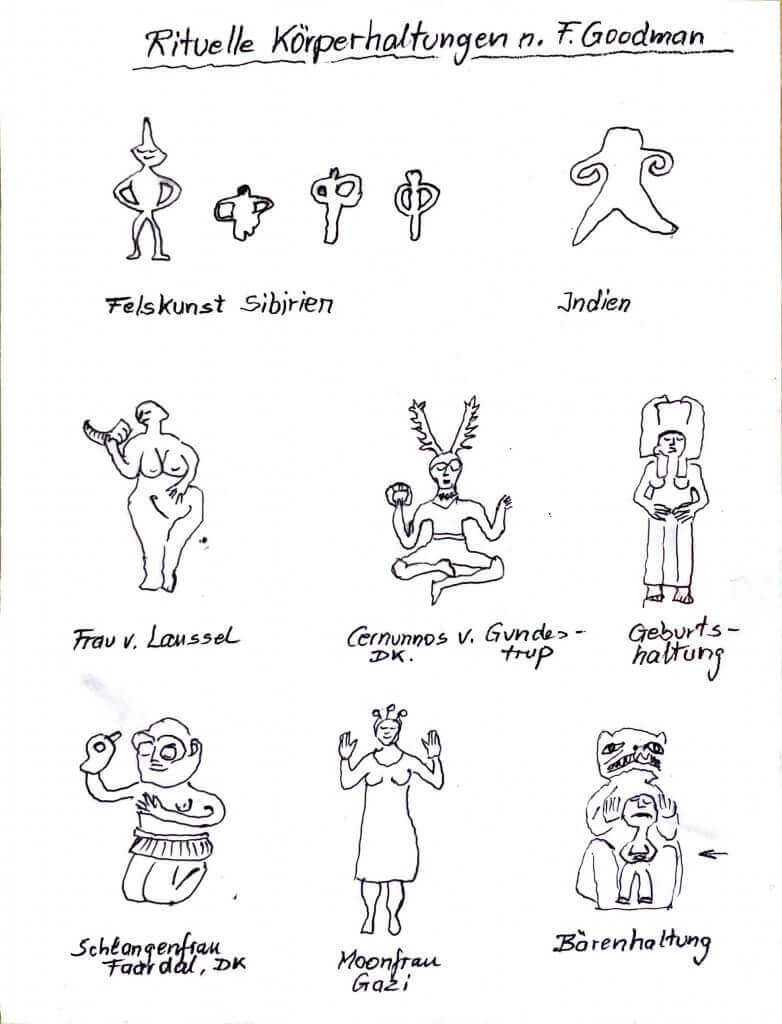 Rituelle Körperhaltungen n. F. Goodman
Felskunst Sibirien
Indien
Frau v. Laussel
Cernunnos v. Gundes-
DK. trup
Geburts-
haltung
Schlangenfrau
Faardal, DK
Moonfrau
Gazi
Bärenhaltung